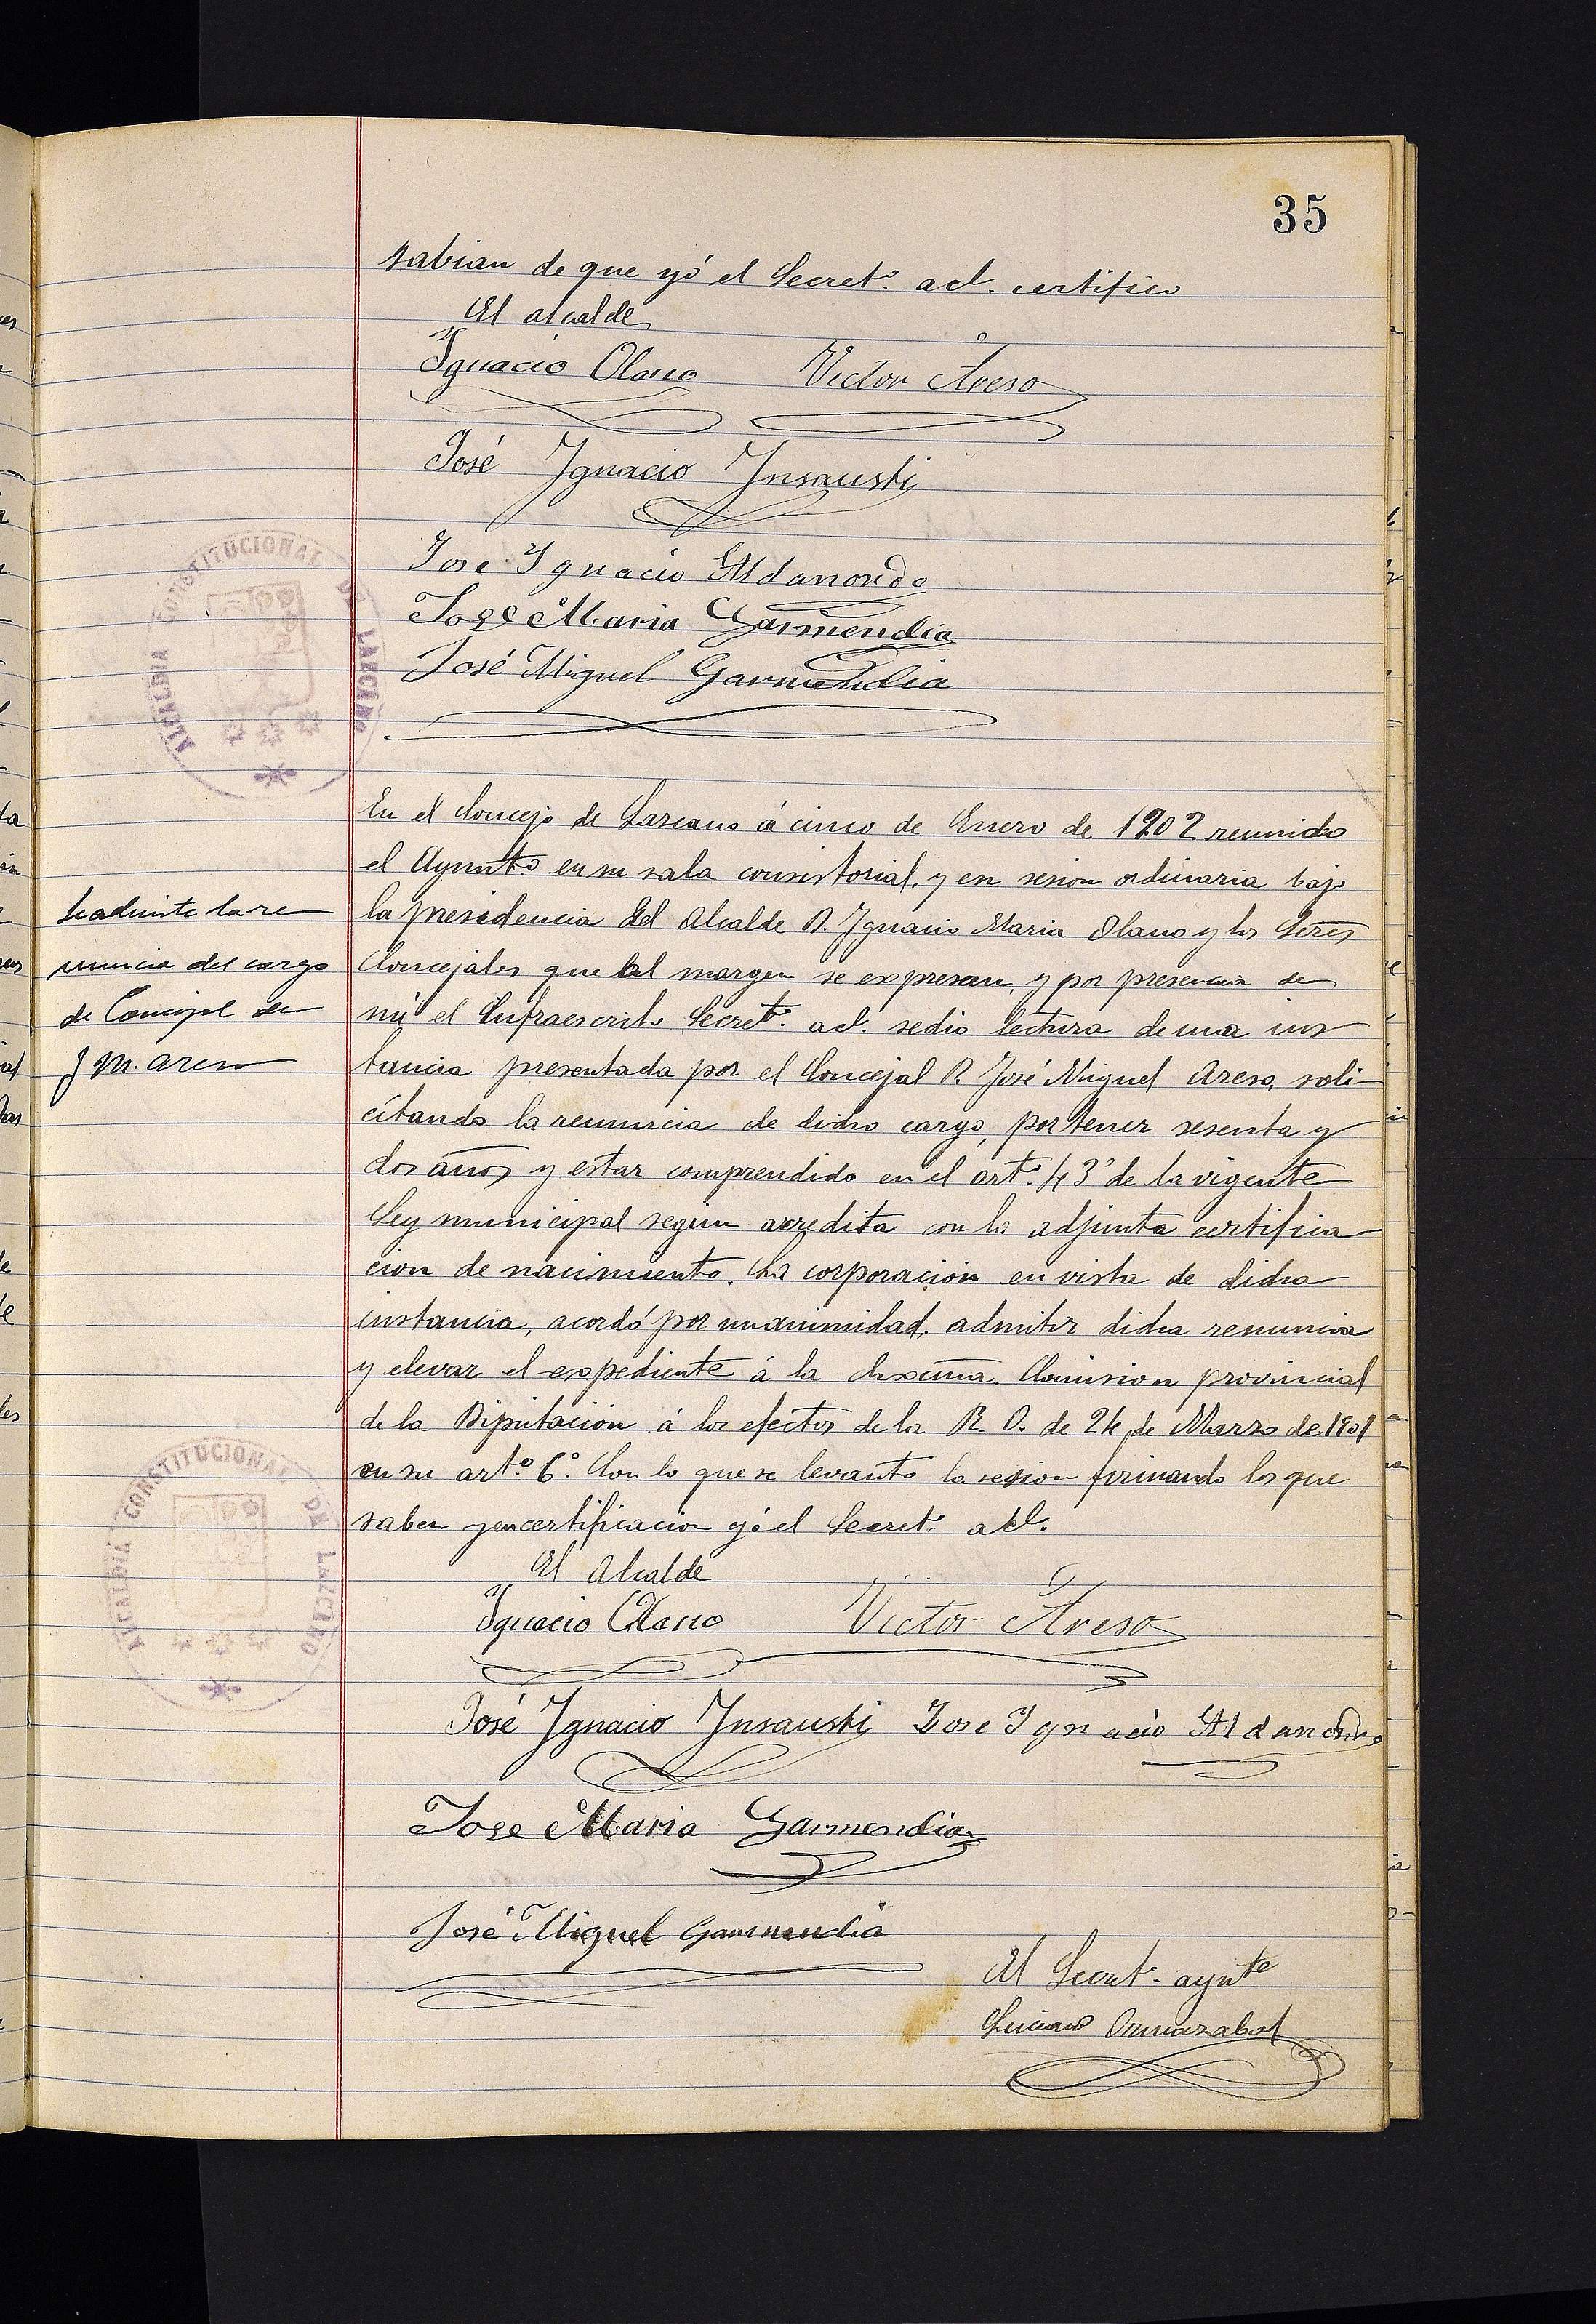 35
sabian de que yó el Secret.º acl. certifico
El alcalde
Ygnacio Olano Victor Areso
José Ygnacio Ynsausti
Jose Ygnacio Aldanondo
Jose Maria Garmendia
José Miguel Garmendia
ALCALDIA CONSTITUCIONAL DE LAZCANO
En el Concejo de Lazcano á cinco de Enero de 1902 reunido
el Ayunt.º en su sala consistorial, y en sesion ordinaria bajo
la presidencia del Alcalde D. Ygnacio Maria Olano y los Señes
Concejales que al margen se expresan, y por presencia de
mi el Infraescrito Secret.º acl. se dió lectura de una ins
tancia presentada por el Concejal D. José Miguel Areso, soli-
citando la renuncia de dicho cargo, por tener sesenta y
dos años y estar comprendido en el art.º 43º de la vigente
Ley municipal segun acredita con la adjunta certifica
cion de nacimiento. La corporación en vista de dicha
instancia, acordó por unanimidad, admitir dicha renuncia
y elevar el expediente á la Excma. Comision provincial
de la Diputación á los efectos de la R. O. de 24 de Marzo de 1901
en su art.º 6.º Con lo que se levanto la sesion firmando los que
saben y en certificacion yó el Secret.º acl.
Se admite la re
nuncia del cargo
de Concejal de
J M. Areso
El Alcalde
Ygnacio Olano Victor Areso
José Ygnacio Ynsausti Jose Ygnacio Aldanondo
Jose Maria Garmendia
José Miguel Garmendia
El Secret.º aynte
Luciano Ormazabal
ALCALDIA CONSTITUCIONAL DE LAZCANO